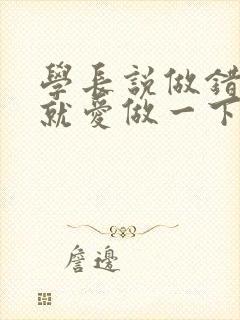 學長説做錯
就愛做一下
詹邊